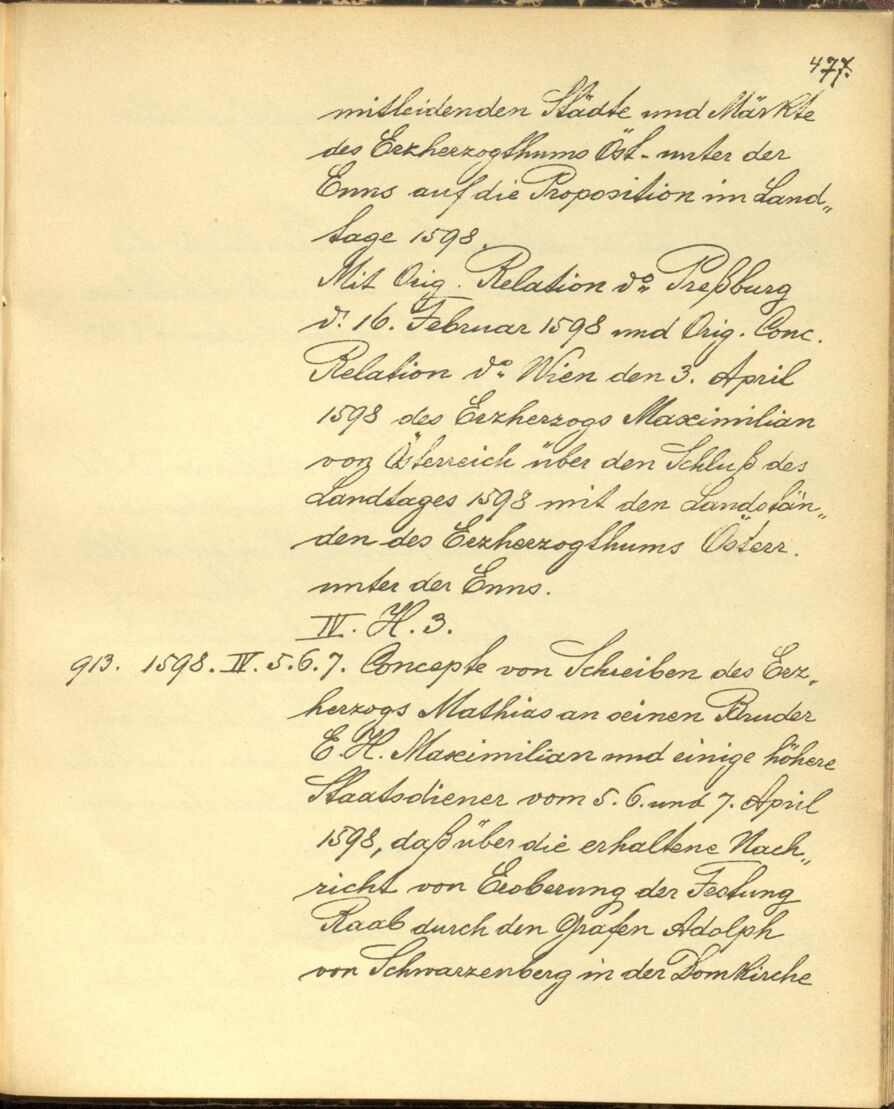 477.
mitleidenden Städte und Märkte
des Erzherzogthums Öst. unter der
Enns auf die Proposition im Land„
tage 1598.
Mit Orig. Relation do Preßburg
d. 16. Februar 1598 und Orig. Conc.
Relation do Wien den 3. April
1598 des Erzherzogs Maximilian
von Österreich über den Schluß des
Landtages 1598 mit den Landstän„
den des Erzherzogthums Österr.
unter der Enns.
IV. H. 3.
913. 1598. IV. 5. 6. 7. Concepte von Schreiben des Erz„
herzogs Mathias an seinen Bruder
E. H. Maximilian und einige höhere
Staatsdiener vom 5. 6. und 7. April
1598, daß über die erhaltene Nach„
richt von Eroberung der Festung
Raab durch den Grafen Adolph
von Schwarzenberg in der Domkirche